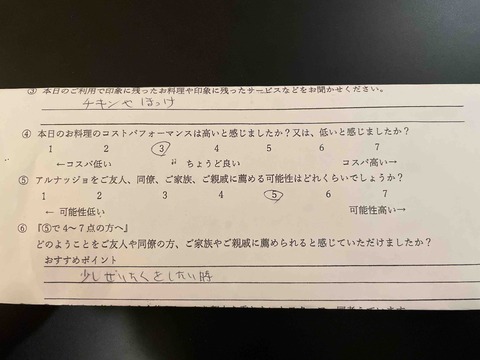 ③ 本日のご利用で印象に残ったお料理や印象に残ったサービスなどをお聞かせください。
チキンや ほっけ
④ 本日のお料理のコストパフォーマンスは高いと感じましたか？又は、低いと感じましたか？
1 2 3 4 5 6 7
←コスパ低い ちょうど良い コスパ高い→
⑤ アルナッジョをご友人、同僚、ご家族、ご親戚に薦める可能性はどれくらいでしょうか？
1 2 3 4 5 6 7
← 可能性低い 可能性高い→
⑥ 『⑤で４～７点の方へ』
どのようことをご友人や同僚の方、ご家族やご親戚に薦められると感じていただけましたか？
おすすめポイント
少しぜいたくをしたい時